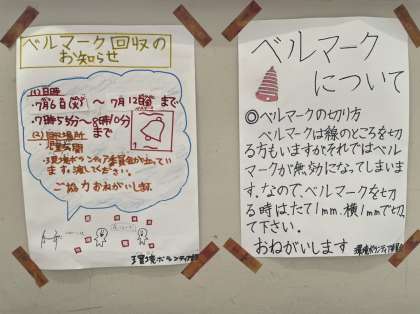 ベルマーク回収の
お知らせ
(1)日時
・7月6日(金)～7月12日(金)まで
・7時55分～8時10分
まで
(2)回収場所
・児童玄関
・環境ボランティア委員会が立ってい
ます。渡してください。
ご協力おねがいします。
環境ボランティア
ベルマーク
について
◎ベルマークの切り方
ベルマークは線のところを切
る方もいますがそれではベル
マークが無効になってしまいま
す。なので、ベルマークを切
る時は、たて1mm、横1mmで切っ
て下さい。
おねがいします
環境ボランティア委員会